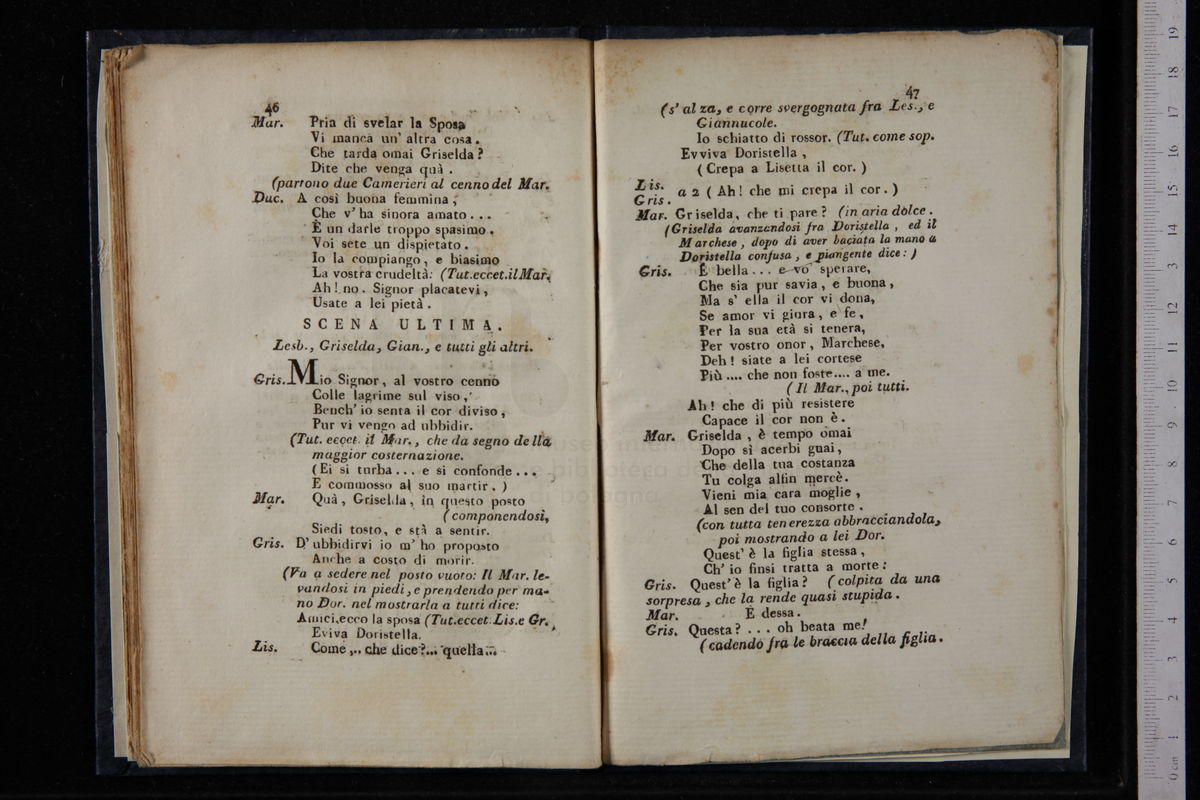 46
Mar. Pria di svelar la Sposa
Vi manca un' altra cosa.
Che tarda omai Griselda?
Dite che venga quà.
(partono due Camerieri al cenno del Mar.
Duc. A così buona femmina,
Che v' ha sinora amato...
È un darle troppo spasimo.
Voi sete un dispietato.
Io la compiango, e biasimo
La vostra crudeltà: (Tut. eccet. il Mar.
Ah! no. Signor placatevi,
Usate a lei pietà.
SCENA ULTIMA.
Lesb., Griselda, Gian., e tutti gli altri.
Gris. Mio Signor, al vostro cenno
Colle lagrime sul viso,
Bench' io senta il cor diviso,
Pur vi vengo ad ubbidir.
(Tut. eccet. il Mar., che da segno della
maggior costernazione.
(Ei si turba... e si confonde...
E commosso al suo martir.)
Mar. Quà, Griselda, in questo posto
(componendosi,
Siedi tosto, e stà a sentir.
Gris. D' ubbidirvi io m' ho proposto
Anche a costo di morir.
(Va a sedere nel posto vuoto: Il Mar. le-
vandosi in piedi, e prendendo per ma-
no Dor. nel mostrarla a tutti dice:
Amici, ecco la sposa (Tut. eccet. Lis. e Gr.
Eviva Doristella.
Lis. Come,.. che dice?... quella...
47
(s' alza, e corre svergognata fra Les., e
Giannucole.
Io schiatto di rossor. (Tut. come sop.
Evviva Doristella,
(Crepa a Lisetta il cor.)
Lis.
Gris. a 2 (Ah! che mi crepa il cor.)
Mar. Griselda, che ti pare? (in aria dolce.
(Griselda avanzandosi fra Doristella, ed il
Marchese, dopo di aver baciata la mano a
Doristella confusa, e piangente dice:)
Gris. È bella... e vo' sperare,
Che sia pur savia, e buona,
Ma s' ella il cor vi dona,
Se amor vi giura, e fe,
Per la sua età si tenera,
Per vostro onor, Marchese,
Deh! siate a lei cortese
Più.... che non foste.... a me.
(Il Mar., poi tutti.
Ah! che di più resistere
Capace il cor non è.
Mar. Griselda, è tempo omai
Dopo sì acerbi guai,
Che della tua costanza
Tu colga alfin mercè.
Vieni mia cara moglie,
Al sen del tuo consorte.
(con tutta tenerezza abbracciandola,
poi mostrando a lei Dor.
Quest' è la figlia stessa,
Ch' io finsi tratta a morte:
Gris. Quest' è la figlia? (colpita da una
sorpresa, che la rende quasi stupida.
Mar. È dessa.
Gris. Questa?... oh beata me!
(cadendo fra le braccia della figlia.